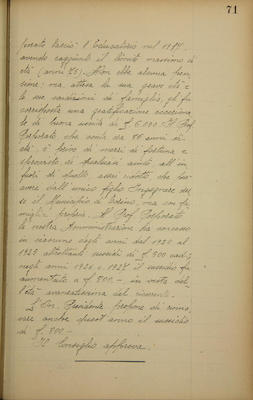 71
porato lasciò l'Educatorio nel 1917
avendo raggiunto il limite massimo di
età (anni 75). Non ebbe alcuna pen-
sione: ma, attesa la sua grave età e
le sue condizioni di famiglia, gli fu
corrisposta una gratificazione occasiona
le di buona uscita di £ 6.000. Il Prof.
che conta ora 80 anni di
età, è privo di mezzi di fortuna e
sprovvisto di qualsiasi aiuto all'in
fuori di quello assai ridotto che ha
avere dall'unico figlio Ingegnere
so il Municipio di Torino, ma con fa
miglia propria. Al Prof.
la nostra Amministrazione ha concesso
in ciascuno degli anni dal 1920 al
1925 altrettanti sussidi di £ 500 cad.;
negli anni 1926 e 1927 il sussidio fu
aumentato a £ 800.- in vista del
l'età avanzatissima del ricorrente.
L'On. Presidente propone di rinno
vare anche quest'anno il sussidio
di £ 800.-
Il Consiglio approva.